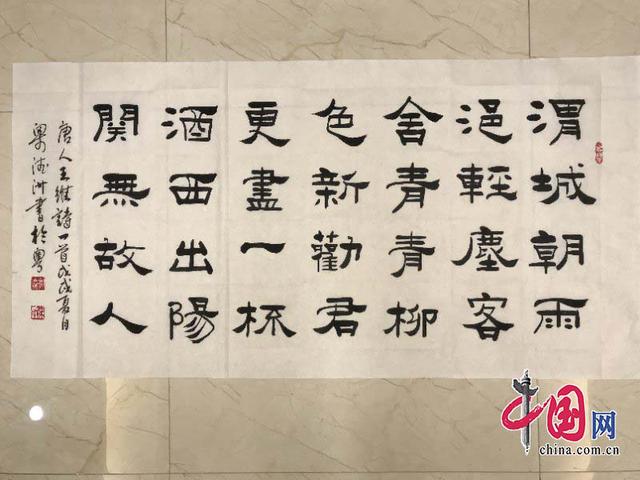 渭城朝雨
浥輕塵客
舍青青柳
色新勸君
更盡一杯
酒西出陽
關無故人
唐人王維詩一首戊戌夏日
書於粵
中国网
china.com.cn